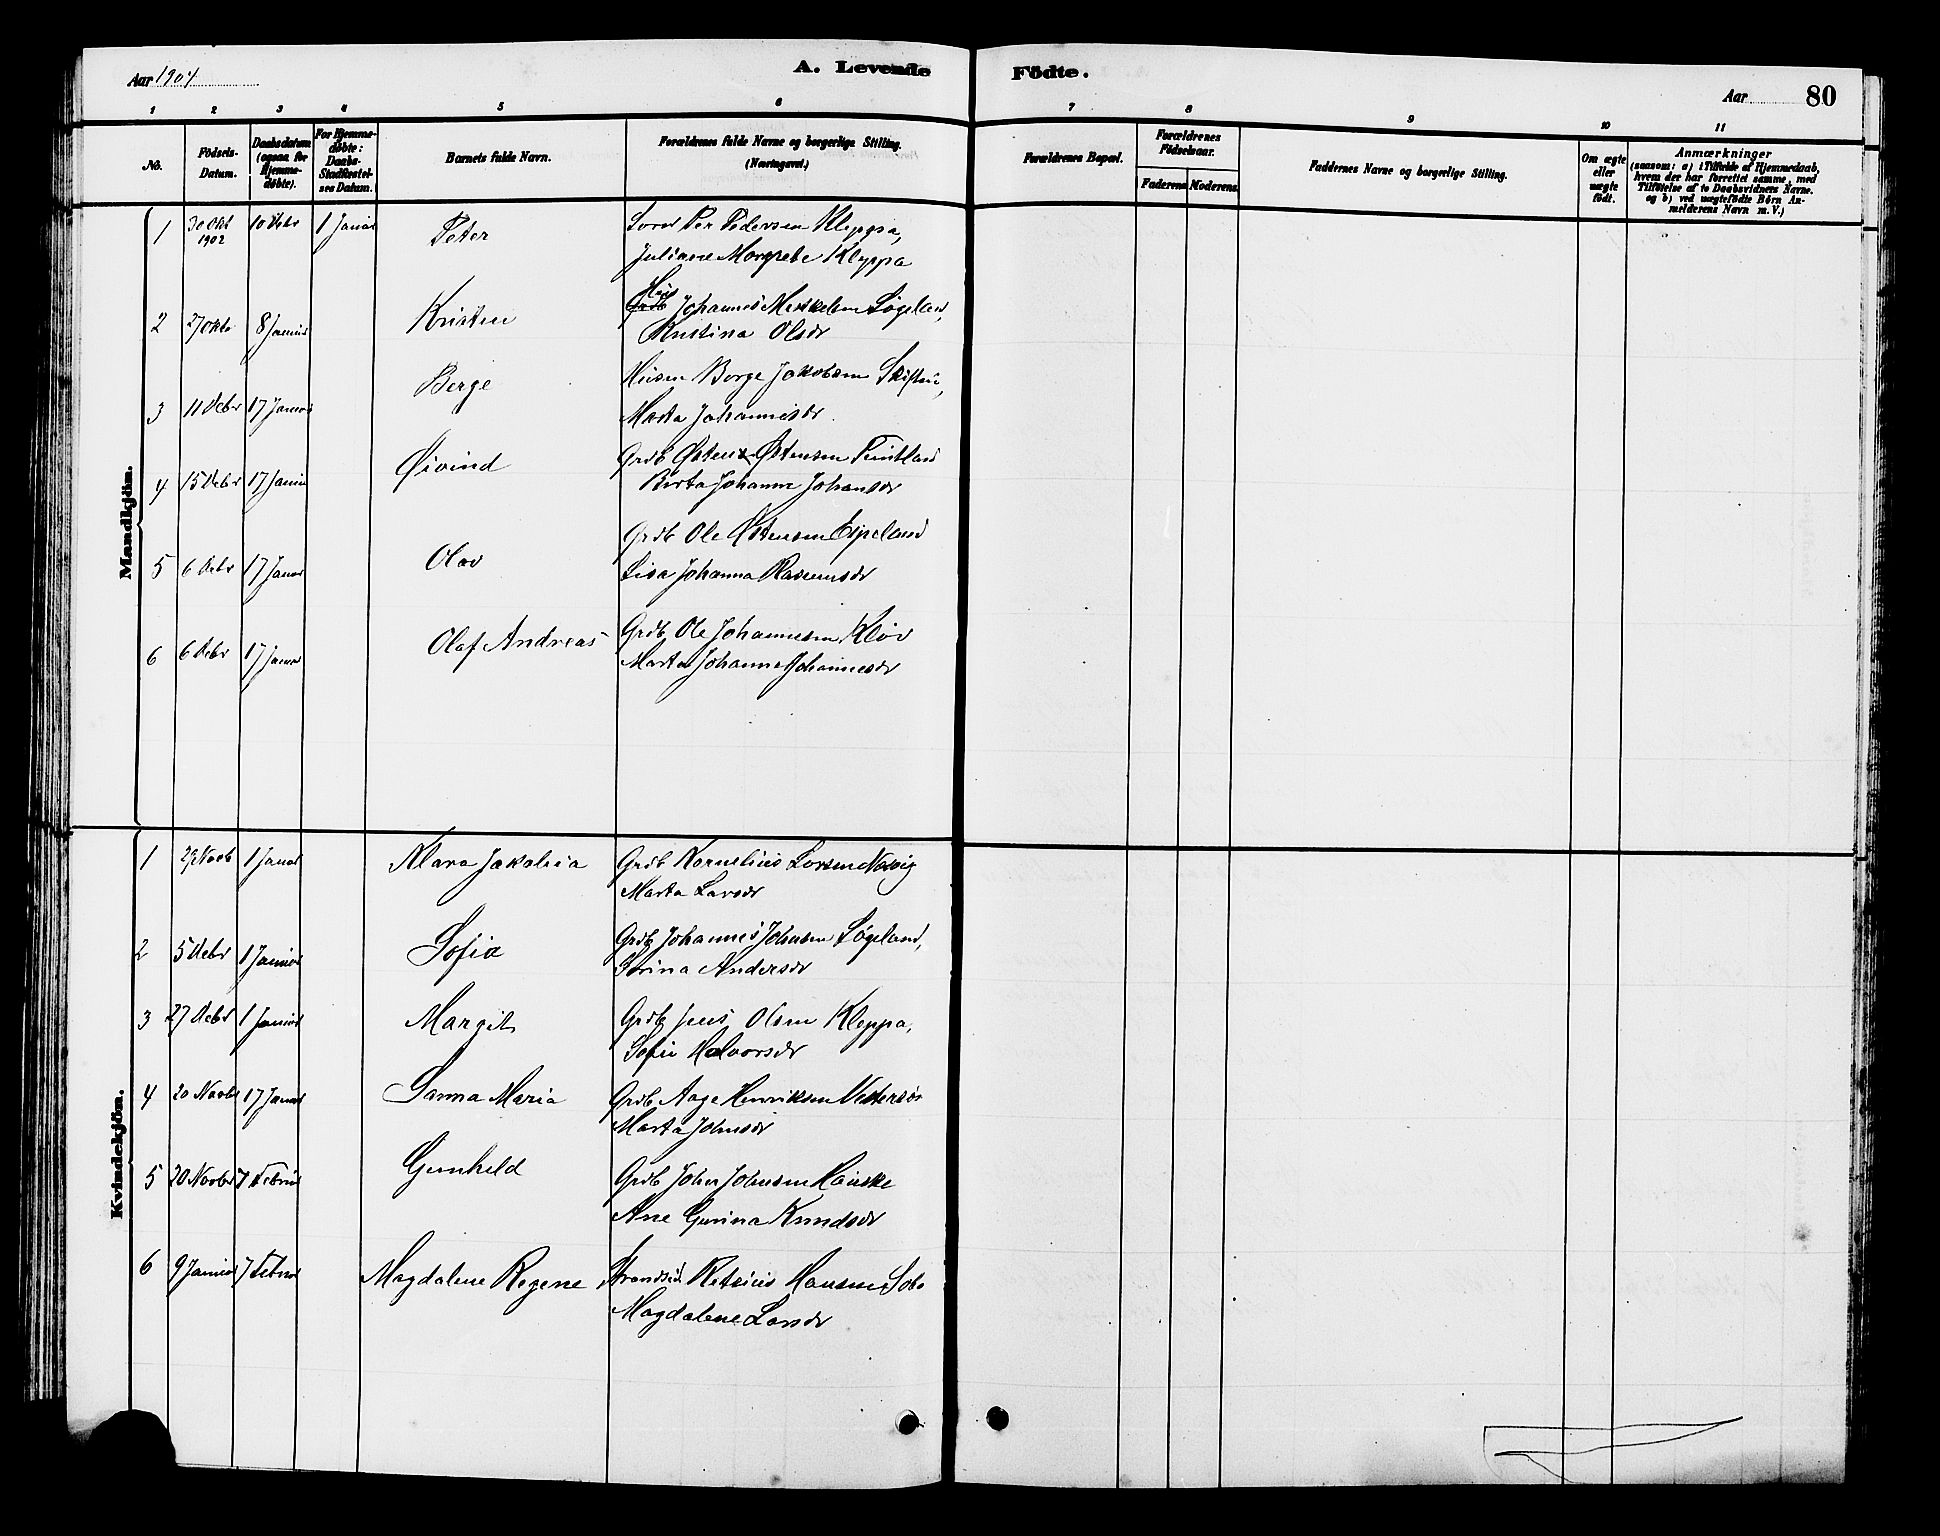 Aar 1904
A. Levende Födte.
Aar 80
1 2 3 4 5 6 7 8 9 10 11
No.
Födsels-
Datum.
Daabsdatum
(ogsaa for
Hjemme-
døbte).
For Hjemme-
døbte:
Daabs-
Stadfæstel-
ses Datum.
Barnets fulde Navn.
Forældrenes fulde Navne og borgerlige Stilling.
(Næringsvei.)
Forældrenes Bopæl.
Forældrenes
Födselsaar.
Faderens Moderens.
Faddernes Navne og borgerlige Stilling.
Om ægte
eller
uægte
født.
Anmærkninger
(saasom: a) i Tilfælde af Hjemmedaab,
hvem der har forrettet samme, med
Tilföielse af to Daabsvidners Navne.
og b) ved uægtefødte Börn An-
melderens Navn m. V.)
Mandkjön.
1 30 Okt 1902 10 Debr 1 Januar Peter Per Pedersen Kleppa,
Juliane Margrete Kleppa
2 27 Okto 8 Januar Kristen Hus Johannes Søgeland,
Kristina Olsdr
3 11 Debr 17 Januar Berge Husm Borge Jakobsen
Marta Johannesdr.
4 15 Debr 17 Januar Øivind Grdb Østen Østensen Tuntland
Berta Johanne Johansdr
5 6 Debr 17 Januar Olav Grdb Ole Østensen Espeland
Lisa Johanna Rasmusdr
6 6 Debr 17 Januar Olaf Andreas Grdb Ole Johannesen Kløv
Marta Johanne Johannesdr
Kvindekjön.
1 29 Novb 1 Januar Klara Jakobia Grdb Kornelius Larsen Nesvig
Marta Larsdr
2 5 Debr 1 Januar Sofia Grdb Johannes Johnsen Søgeland,
Serina Andersdr
3 27 Debr 1 Januar Margit Grdb Jens Olsen Kleppa,
Sofie Halvorsdr
4 20 Novbr 17 Januar Sanna Maria Grdb Aage Henriksen
Marta Johnsdr
5 20 Novbr 7 Februar Gunhild Grdb John Johnsen Hauske
Ane Gurina Knudsdr
6 9 Januar 7 Februar Magdalene Regene Strandsid. Retsius Hansen
Magdalene Larsdr